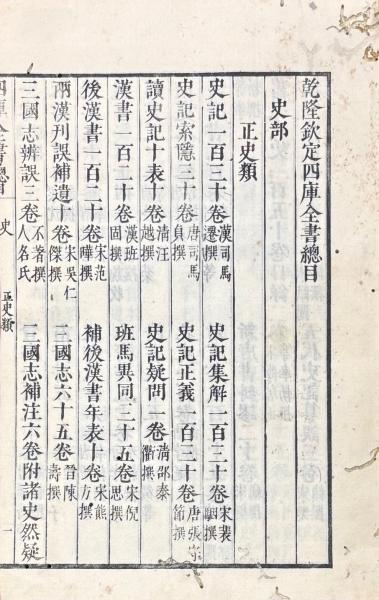 乾隆欽定四庫全書總目
史部
正史類
史記一百三十卷 漢司馬遷撰
史記集解一百三十卷 宋裴駰撰
史記索隱三十卷 唐司馬貞撰
史記正義一百三十卷 唐張守節撰
讀史記十表十卷 清汪越撰
史記疑問一卷 清邵泰衢撰
漢書一百二十卷 漢班固撰
班馬異同三十五卷 宋倪思撰
後漢書一百二十卷 宋范曄撰
補後漢書年表十卷 宋熊方撰
兩漢刊誤補遺十卷 宋吳仁傑撰
三國志六十五卷 晉陳壽撰
三國志辨誤三卷 不著撰人名氏
三國志補注六卷附諸史然疑
史 正史類 一